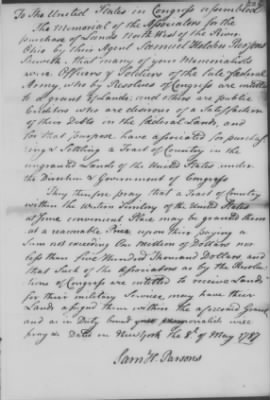 To The United States in Congress assembled
The Memorial of the Associators for the
purchase of Lands North West of the River
Ohio by their Agent Samuel Holden Parsons
Sheweth, that many of your Memorialists
were Officers & Soldiers of the late federal
Army, who by Resolves of Congress are entitled
to a Grant of Lands, and others are public
Creditors who are desirous of a Satisfaction
of their Debts in the federal Lands, and
for that purpose have associated for purchas
ing & Settling a Tract of Country in the
ungranted Lands of the United States under
the Direction & Government of Congress
They therefore pray that a Tract of Country
within the Western Territory of the United States
at some convenient Place may be granted them
at a reasonable Price upon their paying a
Sum not exceeding One Million of Dollars nor
less than five Hundred Thousand Dollars and
that Such of the Associators as by the Resolu
tions of Congress are intitled to receive Lands
for their military Services may have their
Lands assigned them within the aforesaid Grant
and as in Duty bound your memorialists will
pray &c Dated in New York the 8th of May 1787
Saml H. Parsons